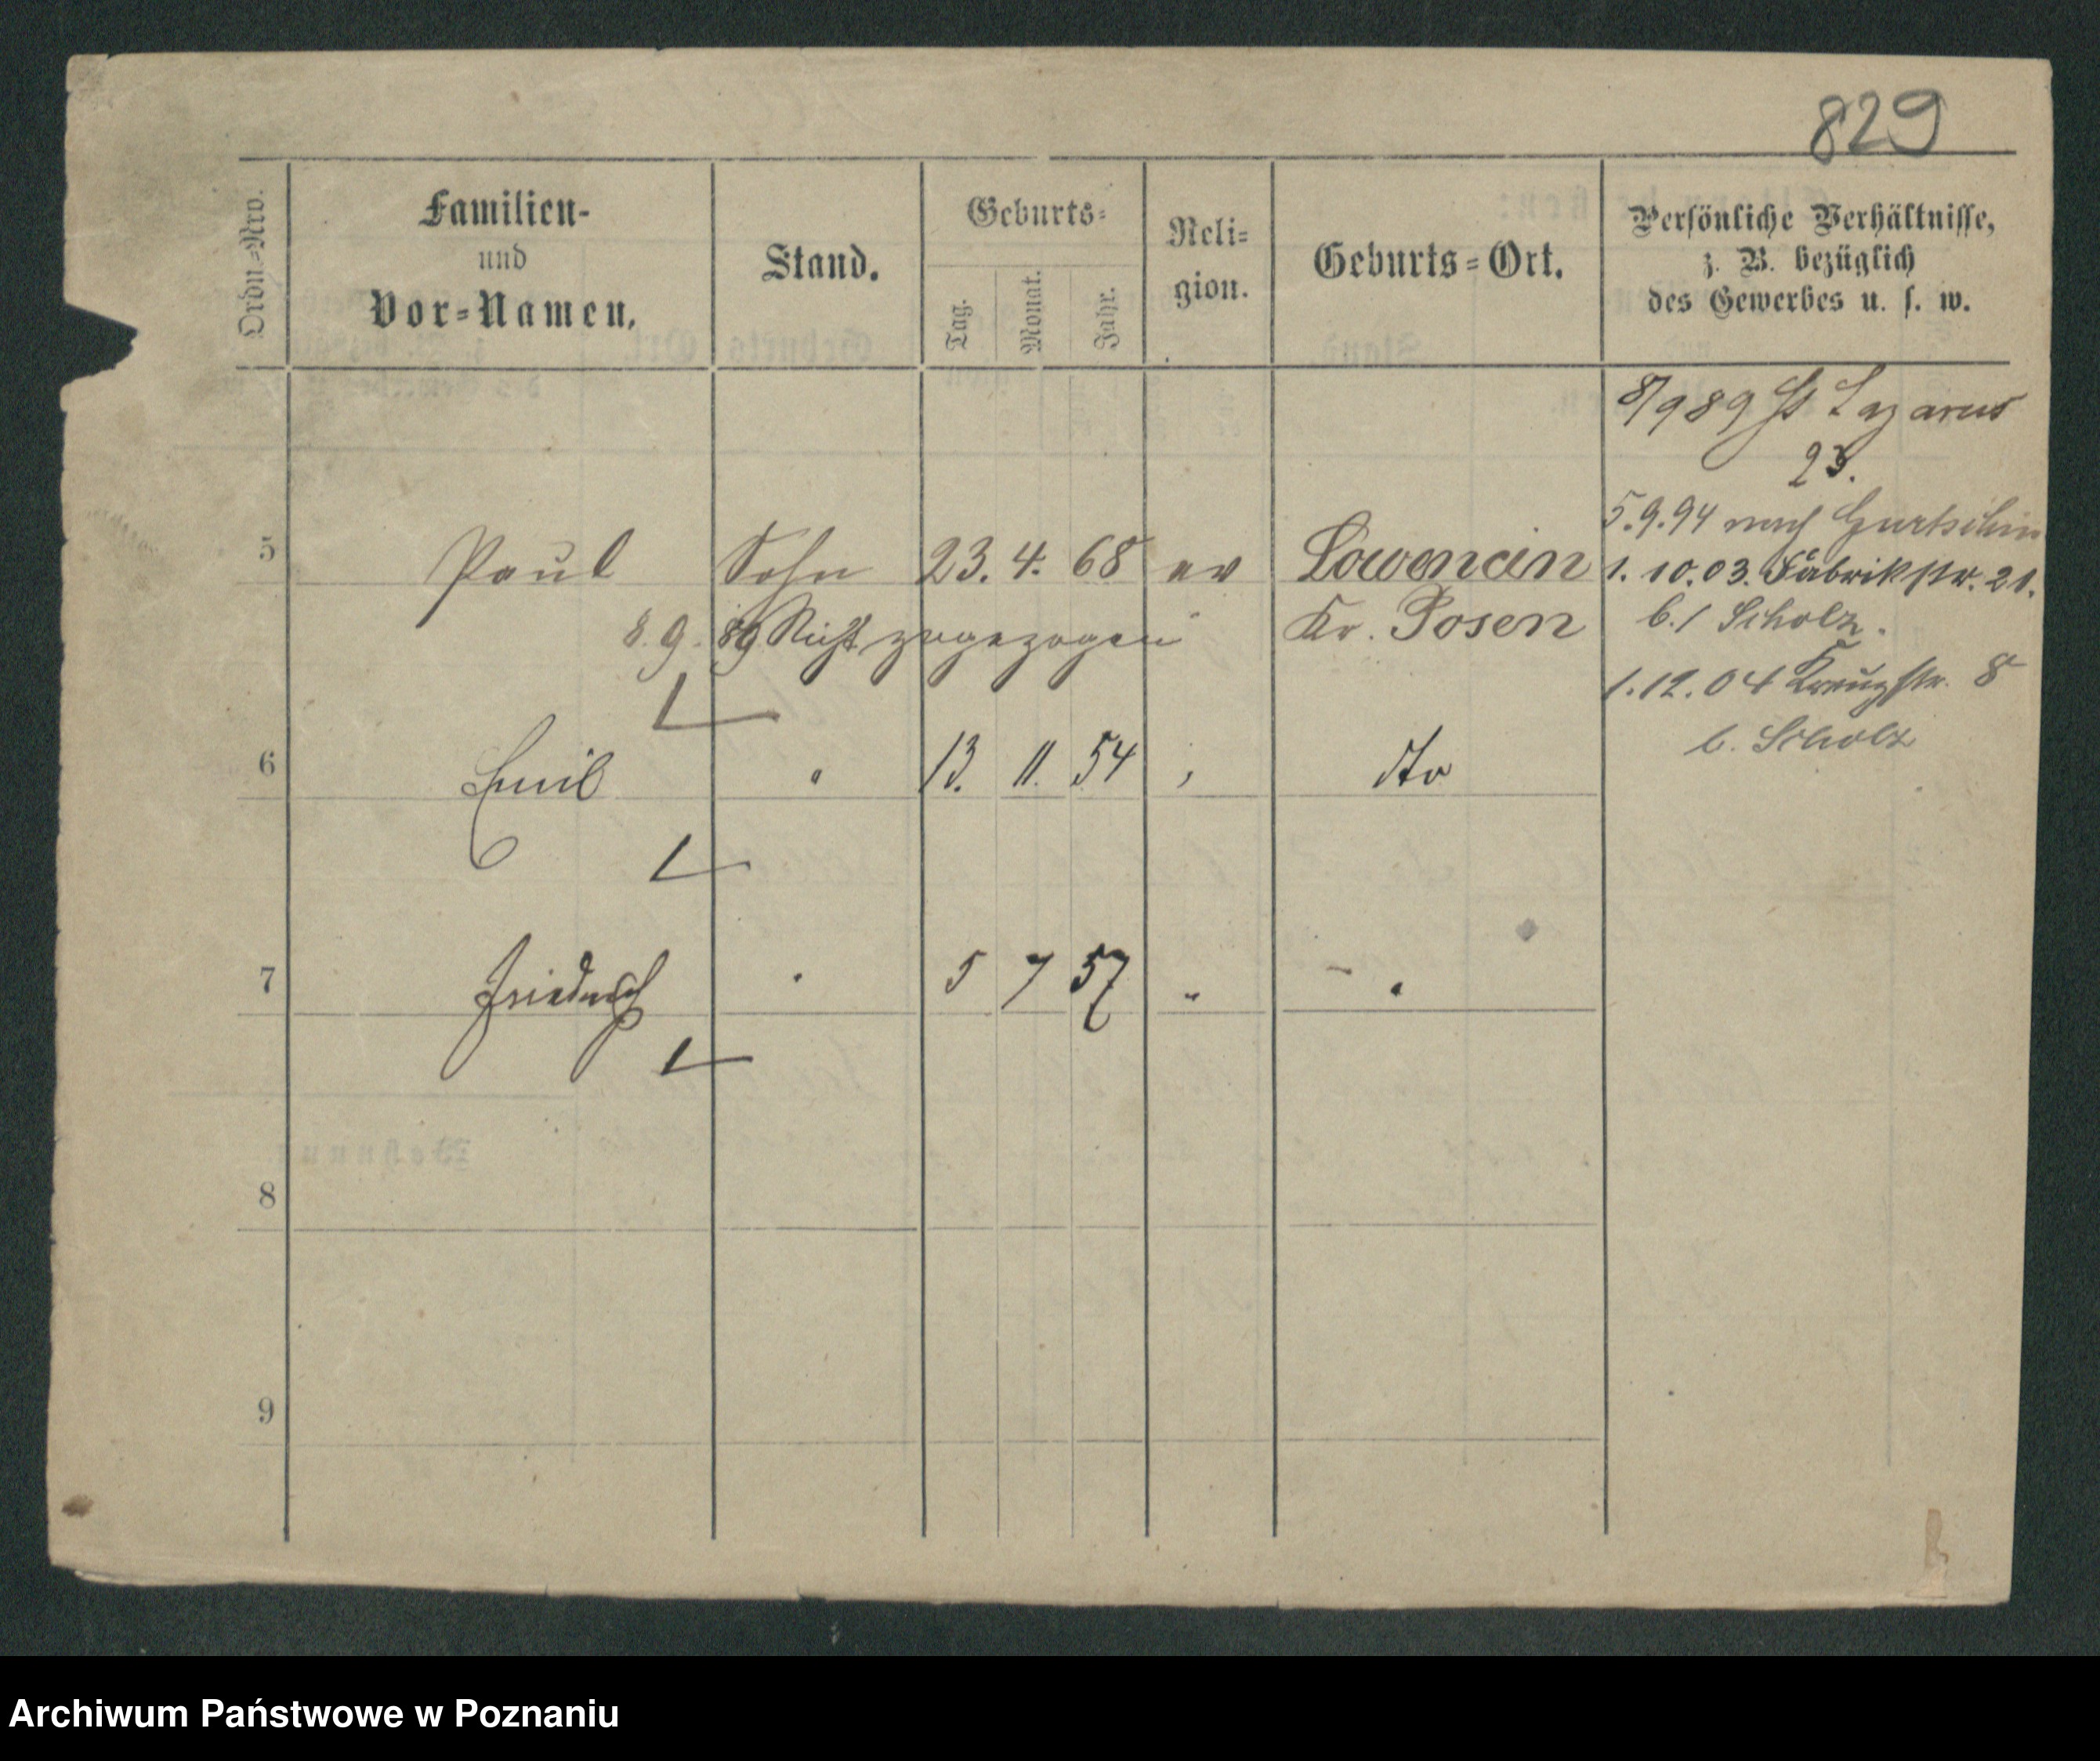 829
Ordn.-Nro.
Familien-
und
Vor-Namen.
Stand.
Geburts-
Tag.
Monat.
Jahr.
Reli-
gion.
Geburts-Ort.
Persönliche Verhältnisse,
z. B. bezüglich
des Gewerbes u. s. w.
8/9 89 St Lazarus
23.
5.9.94 nach Gurtschin
5 Paul Sohn 23. 4. 68 ev Lowencin 1. 10. 03. Fabrikstr. 21.
Kr. Posen b./ Scholz.
8. 9. 89 Nicht zugezogen
1.12.04 Kreuzstr. 8
b. Scholz
6 Emil " 13. 11. 54 " dto
7 Friedrich " 5 7 57 " "
8
9
Archiwum Państwowe w Poznaniu